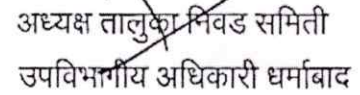 अध्यक्ष तालुका निवड समिती
उपविभागीय अधिकारी धर्माबाद